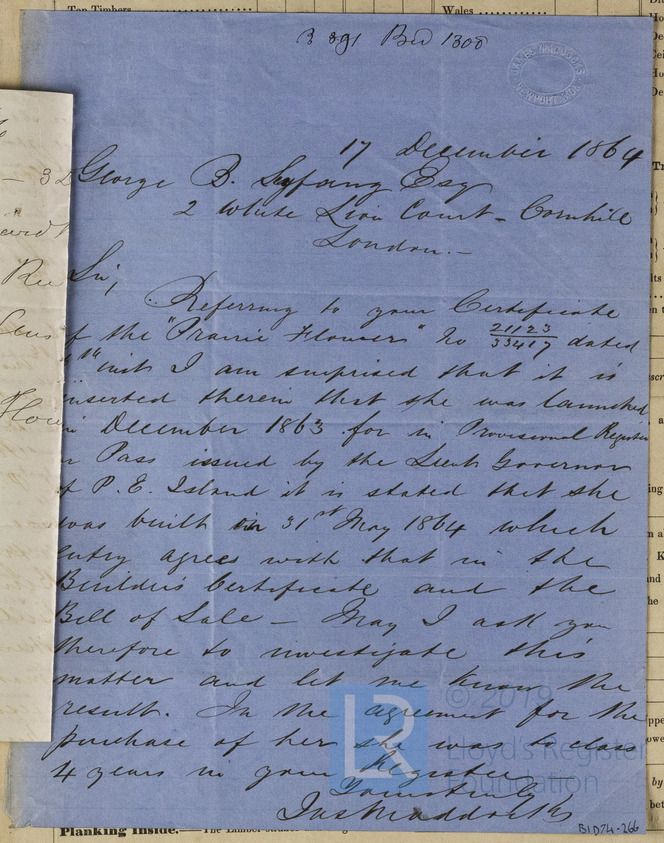 Top Timbers
Wales
3 391 Bed 1300
JAMES MADDOCKS
17 December 1864
George B. Seyfang Esq
2 White Lion Court - Cornhill
London. -
Sir,
Referring to your Certificate
of the "Prairie Flower" No 21123/33417 dated
inst I am surprised that it is
inserted therein that she was launched
in December 1863 for in Provisional Register
or Pass issued by the Lieut Governor
of P. E. Island it is stated that she
was built in 31st May 1864 which
entry agrees with that in the
Builder's Certificate and the
Bill of Sale - May I ask you
therefore to investigate this
matter and let me know the
result. In the agreement for the
purchase of her she was to class
4 years in your Register
Yours truly
Jas Maddocks
LR
© 2019
Lloyd's Register
Foundation
BID74-266
Planking Inside.—